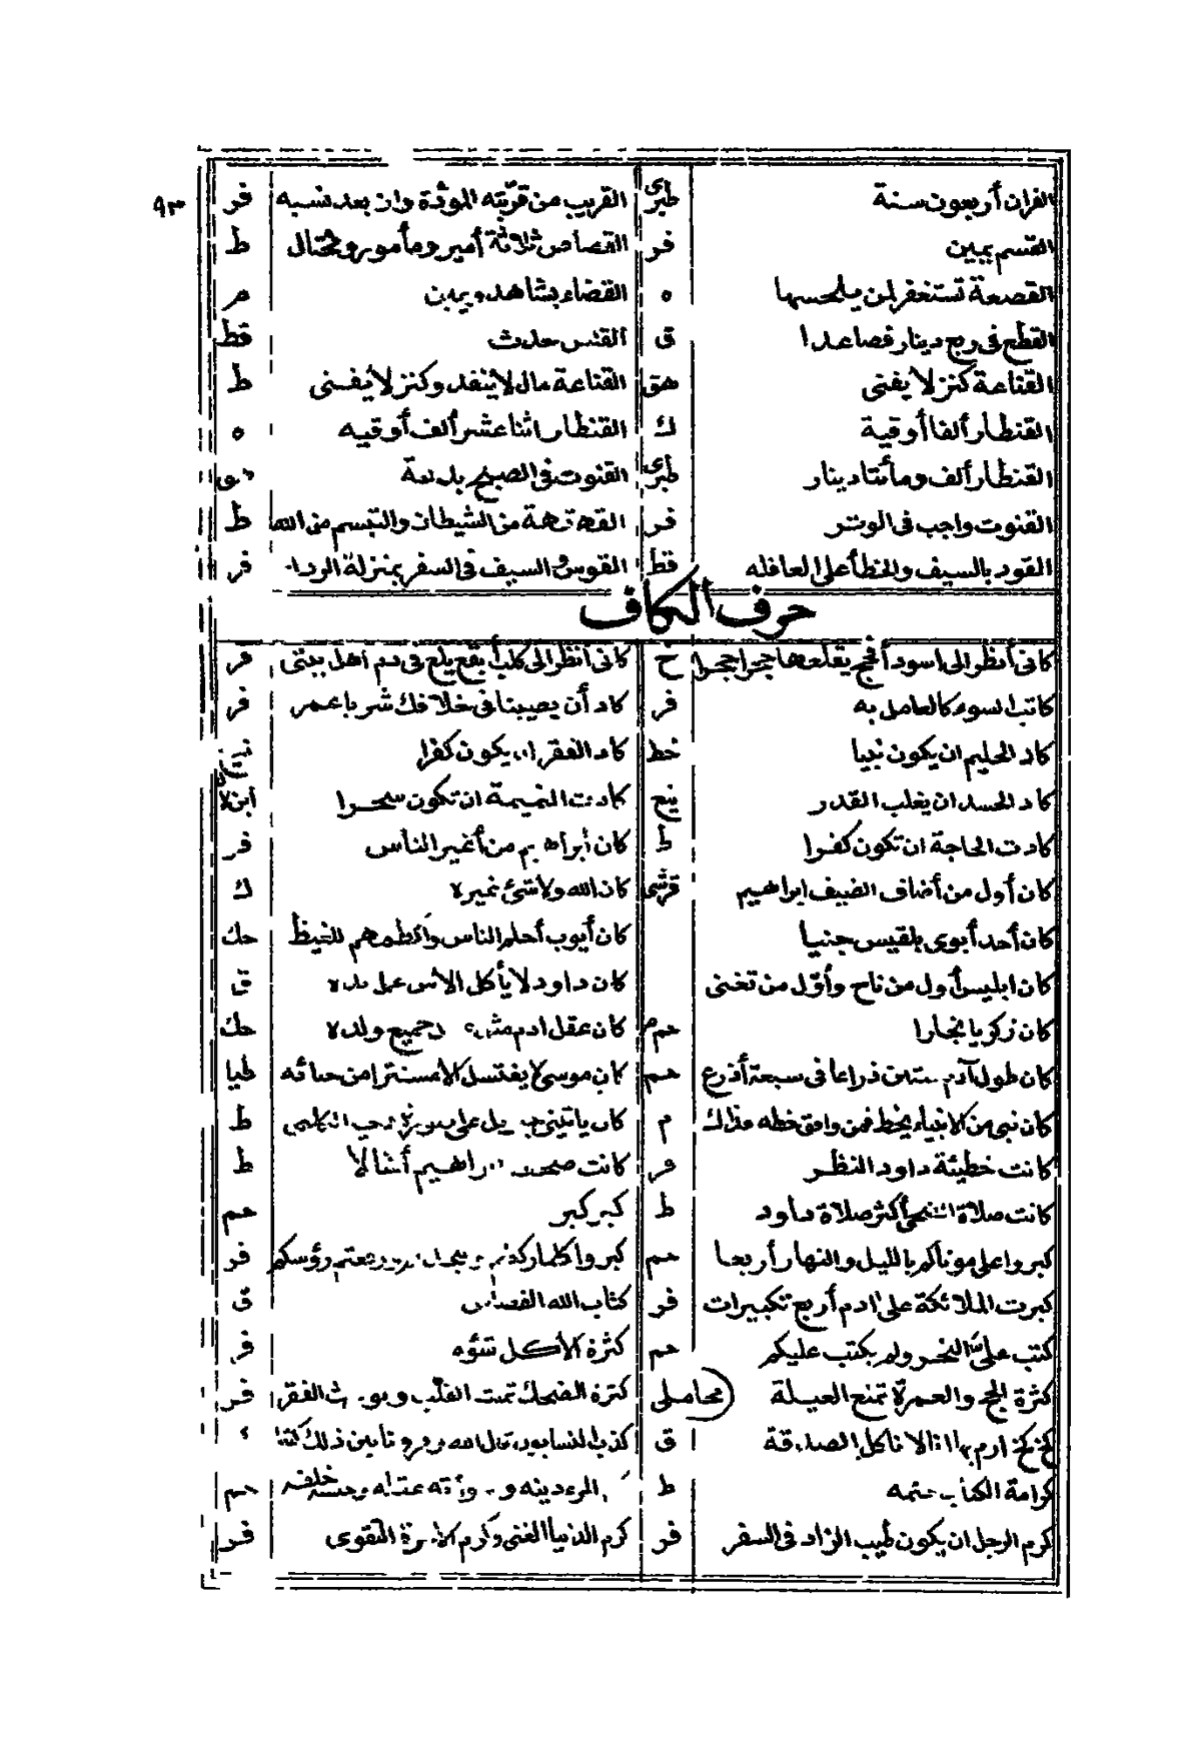 ٩٣
القران أربعون سنة طبرى القريب من قربته المودة وان بعد نسبه فر
القسم يمين فر القصاص ثلاثة أمير ومأمور ومختال ط
القصعة تستغفر لمن يلحسها ه القضاء بشاهد ويمين م
القطع فى ربع دينار فصاعدا ق القلس حدث قط
القناعة كنز لا يفنى هق القناعة مال لا ينفد وكنز لا يفنى ط
القنطار ألفا أوقية ك القنطار اثنا عشر ألف أوقيه ه
القنطار ألف ومأئتا دينار طبرى القنوت فى الصبح بدعة
القنوت واجب فى الوتر فر القهقهة من الشيطان والتبسم من الله ط
القود بالسيف والخطأ على العاقله قط القوس والسيف فى السفر بمنزلة الردا فر
حرف الكاف
كانى أنظر الى اسود أفحج يقلعها حجرا حجرا خ كانى أنظر الى كلب أبقع يلغ فى دم اهل بيتى فر
كاتب السوء كالعامل به فر كاد أن يصيبنا فى خلافك شر يا عمر فر
كاد الحليم ان يكون نبيا خط كاد الفقر ان يكون كفرا
كاد الحسد ان يغلب القدر كادت النميمة ان تكون سحرا ابن لال
كادت الحاجة ان تكون كفرا ط كان ابراهيم من أغير الناس فر
كان أول من أضاف الضيف ابراهيم كان الله ولا شئ غيره ك
كان أحد أبوى بلقيس جنيا كان أيوب أحلم الناس وأكظمهم للغيظ حك
كان ابليس أول من ناح وأول من تغنى كان داود لا يأكل الا من عمل يده ق
كان زكريا نجارا حم م كان عقل ادم مثل جميع ولده حك
كان طول آدم ستين ذراعا فى سبعة أذرع حم كان موسى لا يغتسل الا مستترا من حيائه طيا
كان نبى من الانبياء يخط فمن وافق خطه فذاك م كان ياتينى جبريل على صورة دحية الكلبى ط
كانت خطيئة داود النظر كانت صحف ابراهيم أمثالا ط
كانت صلاة الضحى أكثر صلاة داود ط كبر كبر حم
كبروا على موتاكم بالليل والنهار أربعا حم كبروا كلما ركعتم وسجدتم ورفعتم رؤسكم فر
كبرت الملائكة على ادم أربع تكبيرات فر كتاب الله القصاص ق
كتب على النحر ولم يكتب عليكم حم كثرة الأكل شؤم فر
كثرة الحج والعمرة تمنع العيلة (محاملى كثرة الضحك تميت القلب الفقر فر
كخ كخ ارم بها انا لا ناكل الصدقة ق كذب النسابون قال الله وقرونا بين ذلك كثيرا
كرامة الكتاب ختمه ط المرء دينه عقله خلقه حم
كرم الرجل ان يكون طيب الزاد فى السفر فر كرم الدنيا الغنى وكرم الاخرة التقوى فر